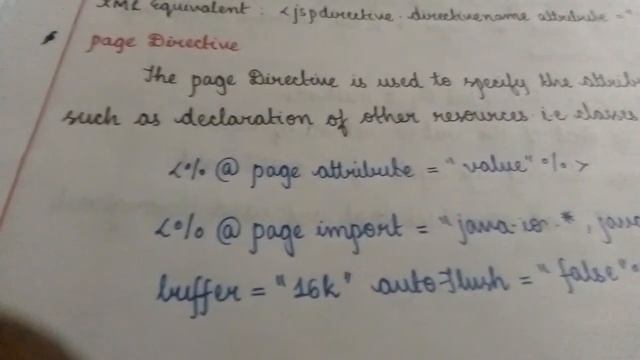 XML Equivalent : <jspdirective.directivename attribute = "
page Directive
The page Directive is used to specify the attribu
such as declaration of other resources i.e classes
<% @ page attribute = "value" %>
<% @ page import = "java.io.*, java
buffer = "16k" autoFlush = "false" %